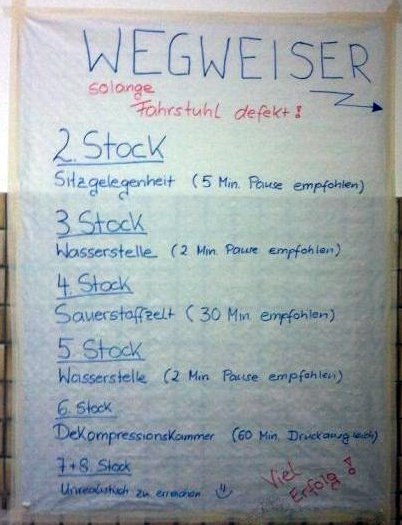 WEGWEISER
solange
Fahrstuhl defekt!
2. Stock
Sitzgelegenheit (5 Min. Pause empfohlen)
3 Stock
Wasserstelle (2 Min. Pause empfohlen)
4. Stock
Sauerstoffzelt (30 Min. empfohlen)
5. Stock
Wasserstelle (2 Min Pause empfohlen)
6. Stock
Dekompressionskammer (60 Min. Druckausgleich)
7+8. Stock
Unrealistisch zu erreichen
Viel
Erfolg!